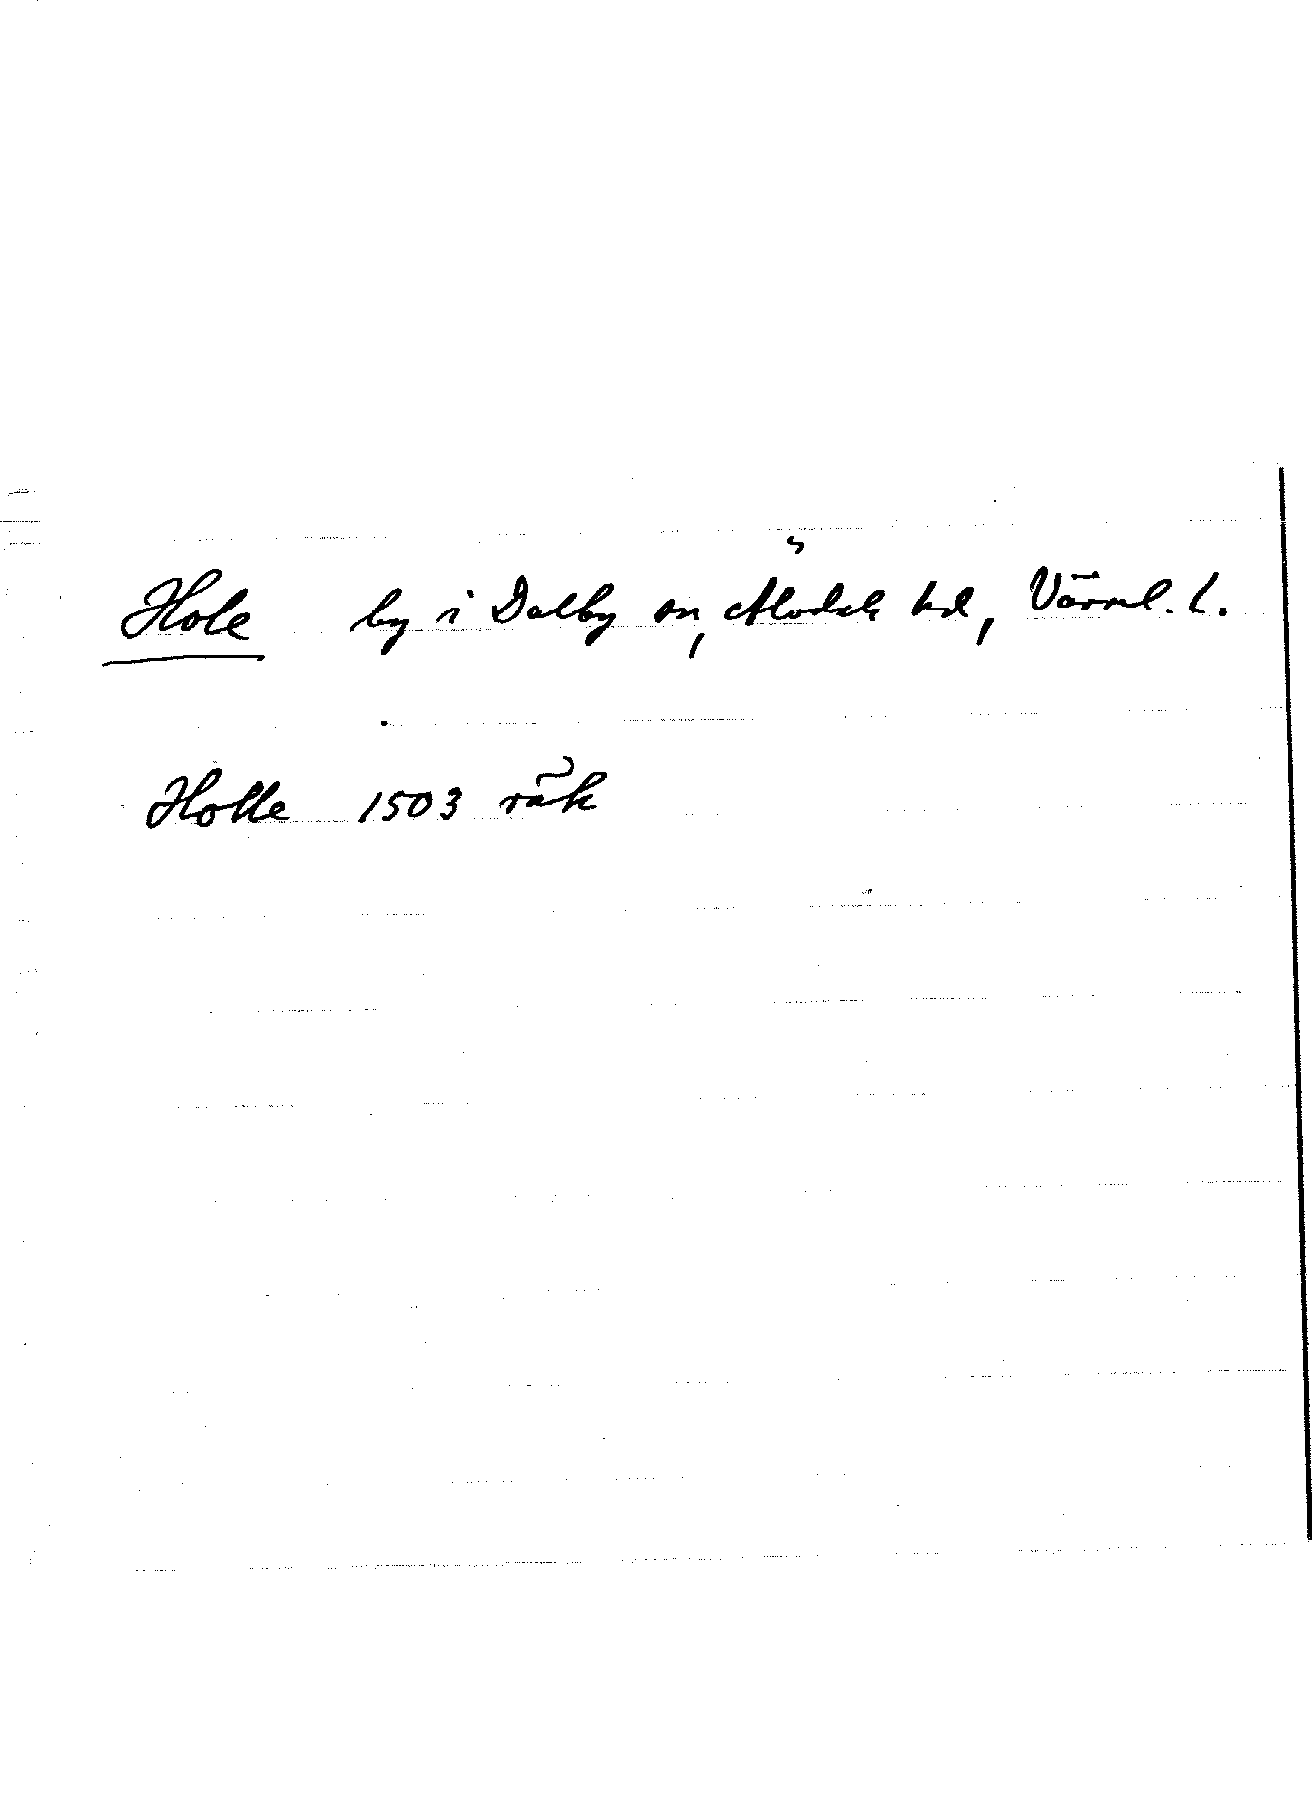 Hole by i Dalby sn, Älvdals hd, Värml. l.
Holle 1503 räk